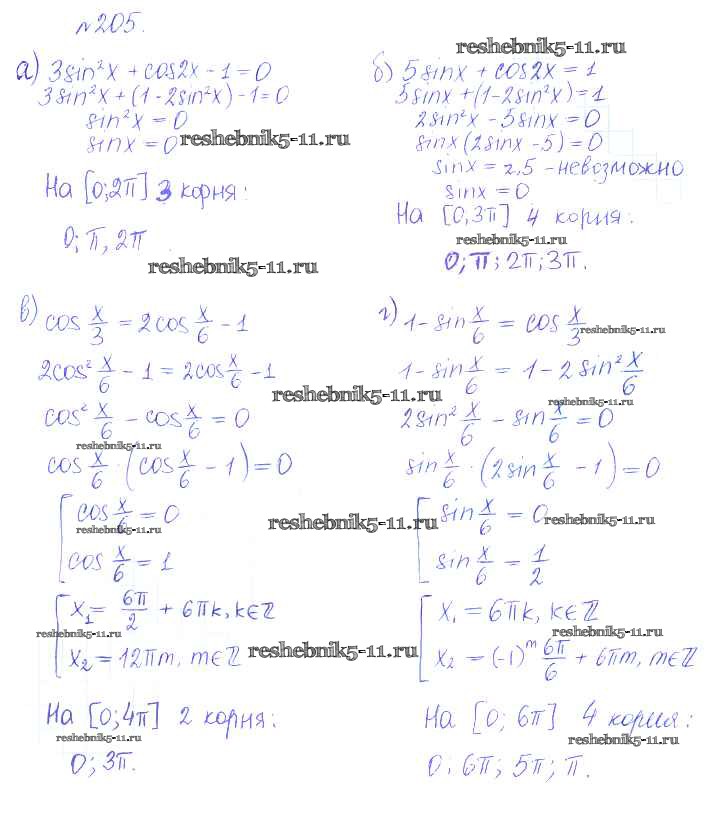 №205.
а) 3sin²x + cos2x - 1 = 0
3sin²x + (1 - 2sin²x) - 1 = 0
sin²x = 0
sinx = 0
reshebnik5-11.ru
На [0;2π] 3 корня:
0; π, 2π
reshebnik5-11.ru
reshebnik5-11.ru
б) 5sinx + cos2x = 1
5sinx + (1 - 2sin²x) = 1
2sin²x - 5sinx = 0
sinx (2sinx - 5) = 0
sinx = 2,5 - невозможно
sinx = 0
На [0,3π] 4 корня:
reshebnik5-11.ru
0; π; 2π; 3π.
в) cos x/3 = 2cos x/6 - 1
2cos² x/6 - 1 = 2cos x/6 - 1
reshebnik5-11.ru
cos² x/6 - cos x/6 = 0
reshebnik5-11.ru
cos x/6 · (cos x/6 - 1) = 0
[ cos x/6 = 0
reshebnik5-11.ru
cos x/6 = 1
reshebnik5-11.ru
[ x₁ = 6π/2 + 6πk, k∈ℤ
reshebnik5-11.ru
x₂ = 12πm, m∈ℤ
reshebnik5-11.ru
На [0;4π] 2 корня:
reshebnik5-11.ru
0; 3π.
г) 1 - sin x/6 = cos x/3
reshebnik5-11.ru
1 - sin x/6 = 1 - 2sin² x/6
reshebnik5-11.ru
2sin² x/6 - sin x/6 = 0
sin x/6 · (2sin x/6 - 1) = 0
[ sin x/6 = 0
reshebnik5-11.ru
sin x/6 = 1/2
[ x₁ = 6πk, k∈ℤ
reshebnik5-11.ru
x₂ = (-1)ᵐ 6π/6 + 6πm, m∈ℤ
На [0; 6π] 4 корня:
reshebnik5-11.ru
0; 6π; 5π; π.